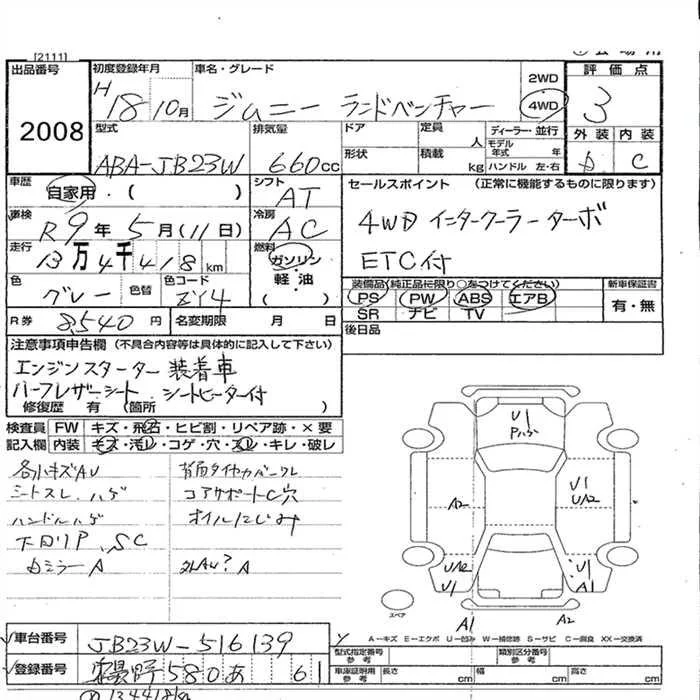 [2111]
出品番号 初度登録年月 車名・グレード 2WD 評価点
2008 H18 10月 ジムニー ランドベンチャー 4WD 3
型式 排気量 ドア 定員 人 ディーラー・並行 外装 内装
モデル年式 年
ABA-JB23W 660cc 形状 積載 kg ハンドル 左・右 C
車歴 自家用・( ) シフト AT セールスポイント (正常に機能するものに限ります)
車検 R9年5月(11日) 冷房 AC 4WD インタークーラーターボ
走行 13万4千418km 燃料 ガソリン ETC付
軽・油
( )
色 グレー 色替 色コード ZY4 装備品(純正品に限り○をつけてください) 新車保証書
PS PW ABS エアB 有・無
SR ナビ TV
R券 8,540円 名変期限 月 日 後日品
注意事項申告欄 (不具合内容等は具体的に記入して下さい)
エンジンスターター装着車
ハーフレザーシート シートヒーター付
修復歴 有 (箇所 )
検査員 FW キズ・飛石・ヒビ割・リペア跡・×要
記入欄 内装 キズ・汚レ・コゲ・穴・スレ・キレ・破レ
各小キズAU 背面タイヤカバークレ
シートスレ、ハゲ コアサポートC穴
ハンドルハゲ オイルにじみ
下回りP、SC
ミラーA A
U1
Pハゲ
A2
U1
UA2
UA2
U1
U1
A1
スペア
A1 A2
車台番号 JB23W-516139
A－キズ E－エクボ U－凹み W－補修跡 S－サビ C－腐食 XX－交換済
型式指定番号 参考 類別区分番号 参考
登録番号 580あ 61
車庫証明用 参考 長さ cm 幅 cm 高さ cm